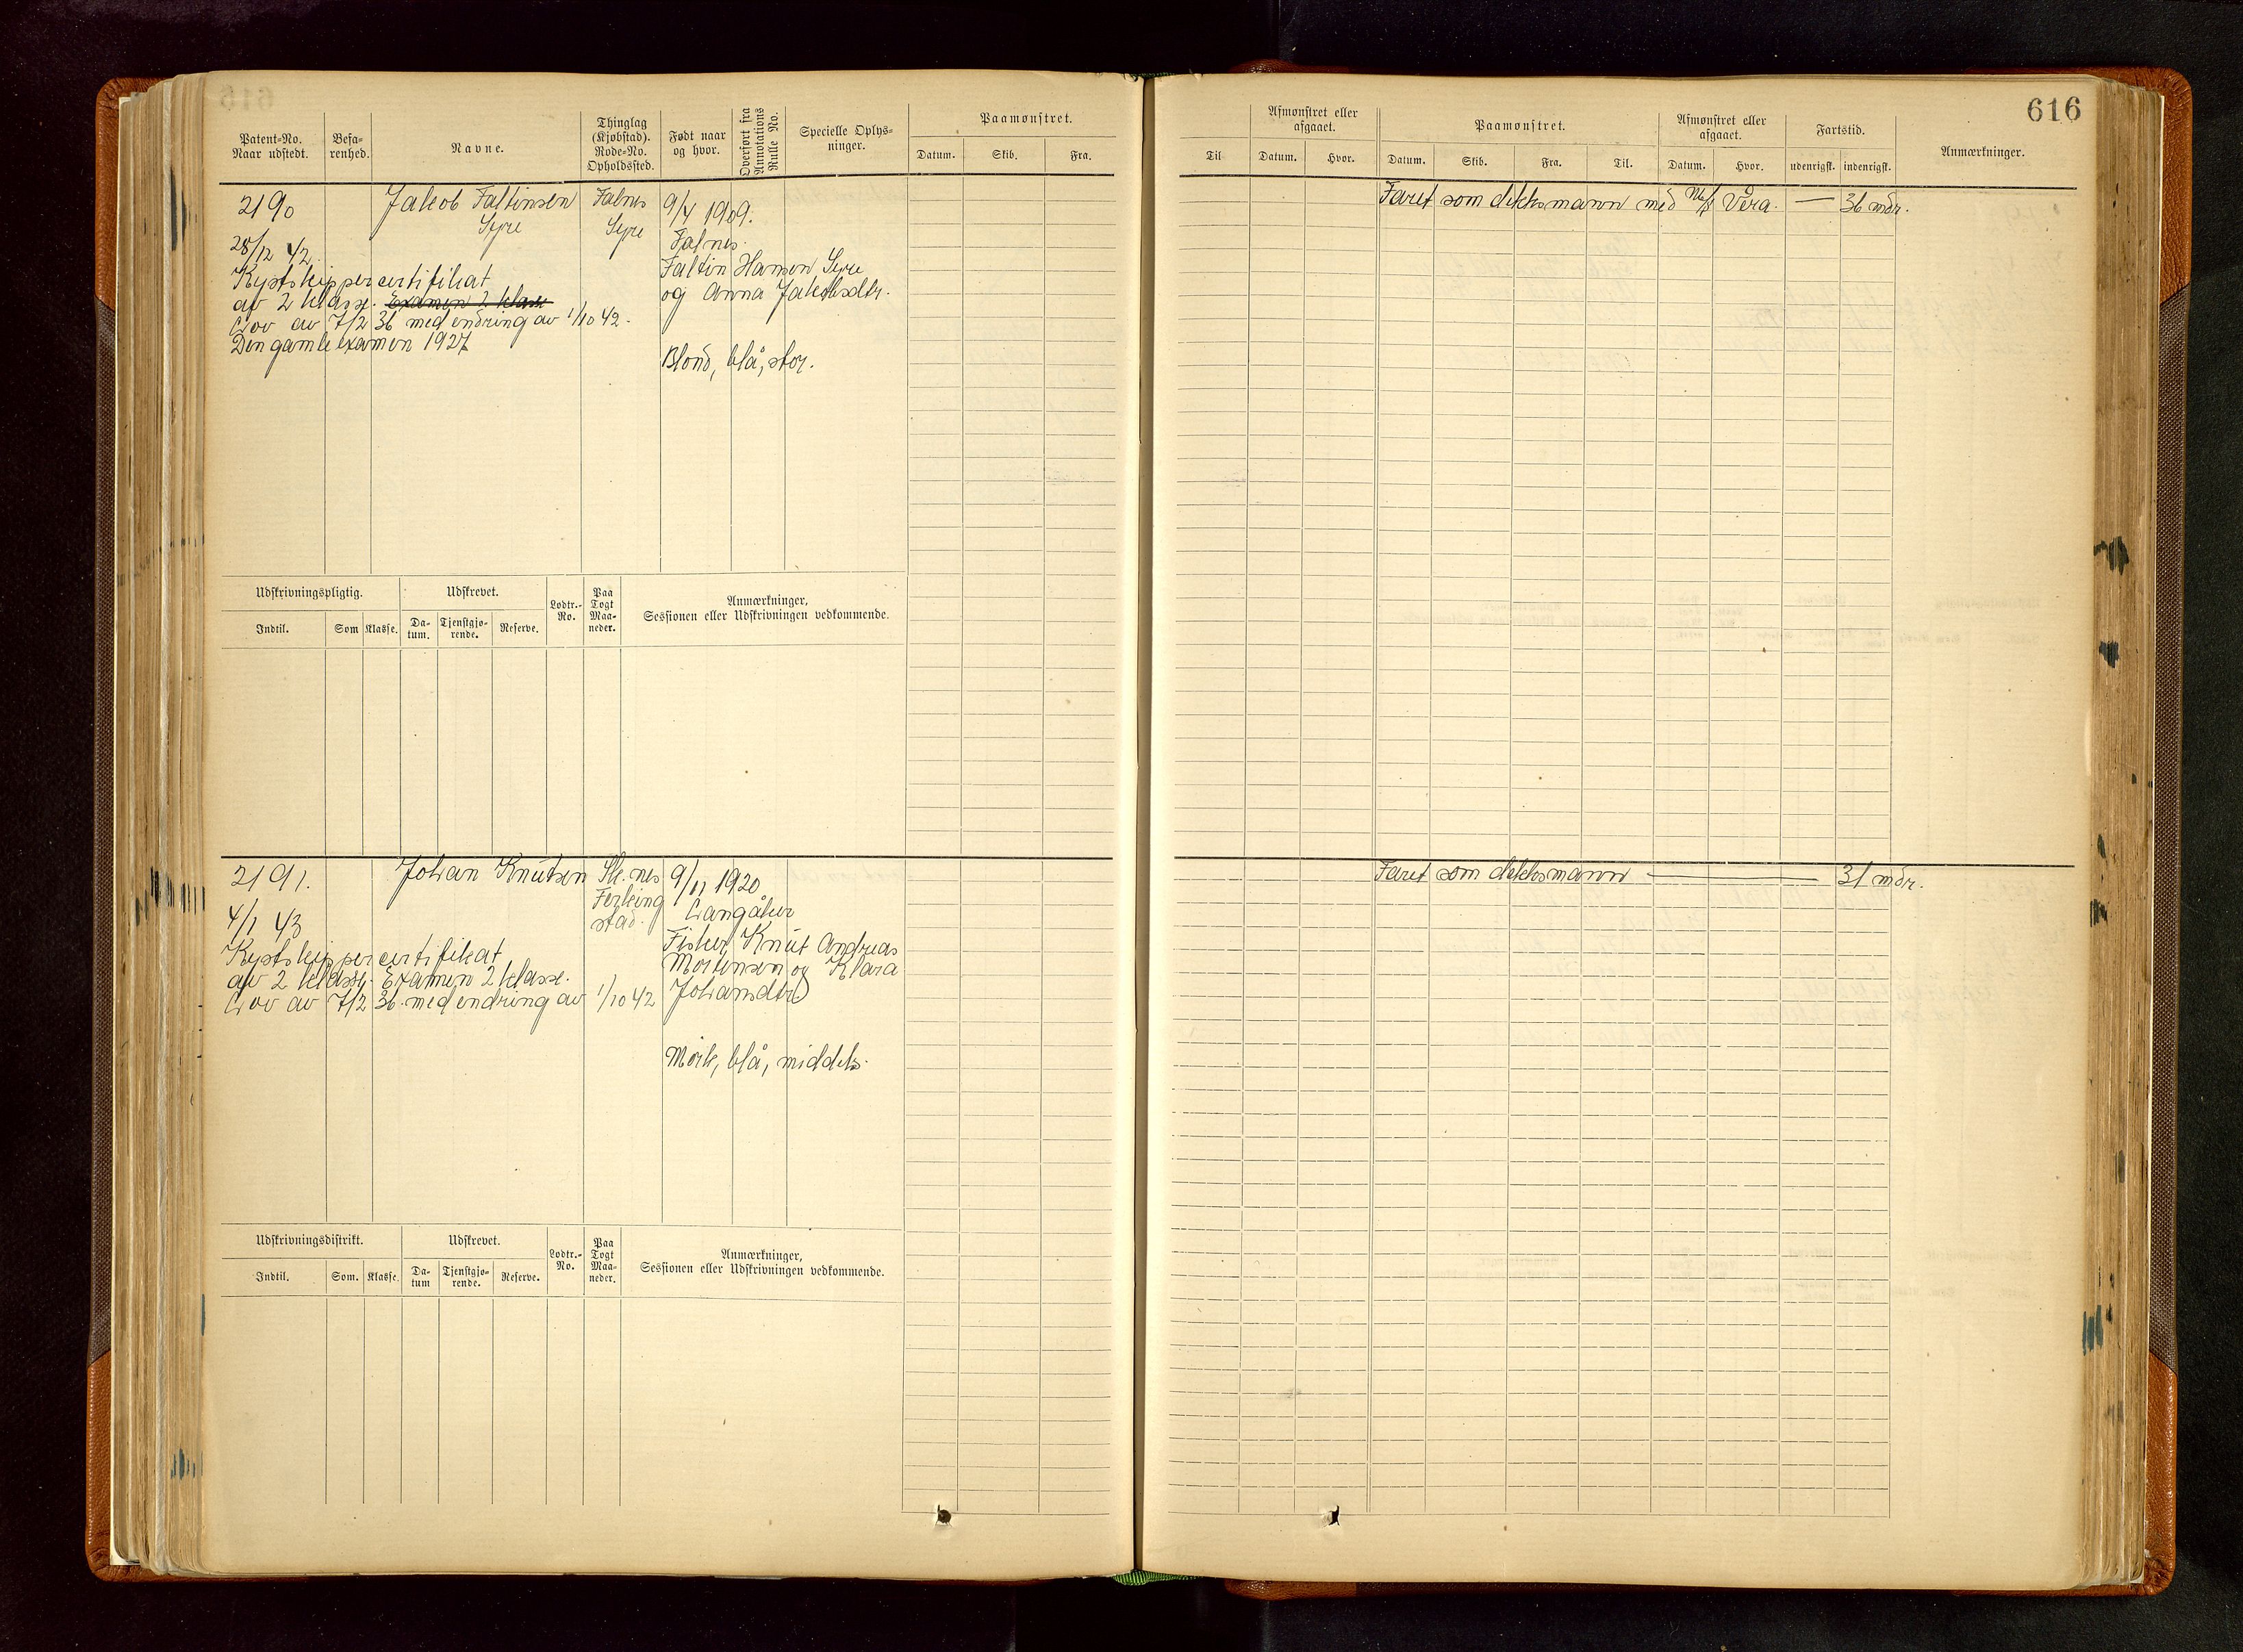 616
Patent=No. Naar udstedt.
Befa=renhed.
Navne.
Thinglag (Kjøbstad). Rode=No. Opholdssted.
Født naar og hvor.
Overført fra Annotations Rulle No.
Specielle Oplys=ninger.
Paamønstret.
Datum. Skib. Fra.
Til
Afmønstret eller afgaaet.
Datum. Hvor.
Paamønstret.
Datum. Skib. Fra. Til.
Afmønstret eller afgaaet.
Datum. Hvor.
Fartstid.
udenrigsk. indenrigsk.
Anmærkninger.
2190
28/12 42.
Kystskippercertifikat
av 2 klasse. Examen 2 klasse
Lov av 7/2 36 med endring av 1/10 42.
Den gamle examen 1927
Jakob Faltinsen
Syre
Falnes
Syre
9/4 1909.
Falnes.
Faltin Hansen Syre
og Anna Jakobsdtr.
Blond, blå, stor.
Faret som dekksmann med M/k Vera. — 36 mdr.
Udskrivningspligtig.
Indtil. Som Klasse.
Udskrevet.
Da=tum. Tjenstgjø=rende. Reserve.
Lodtr.=No.
Paa Togt Maa=neder.
Anmærkninger,
Sessionen eller Udskrivningen vedkommende.
2191.
4/1 43
Kystskippercertifikat
av 2 klasse. Examen 2 klasse.
Lov av 7/2 36 med endring av 1/10 42
Johan Knutsen
Sk.nes
Ferking
stad.
9/11 1920
Langåker
Fisker Knut Andreas
Mortensen og Klara
Johansdtr.
Mørk, blå, middels.
Faret som dekksmann — 31 mdr.
Udskrivningsdistrikt.
Indtil. Som. Klasse.
Udskrevet.
Da=tum Tjenstgjø=rende. Reserve.
Lodtr.=No.
Paa Togt Maa=neder.
Anmærkninger,
Sessionen eller Udskrivningen vedkommende.